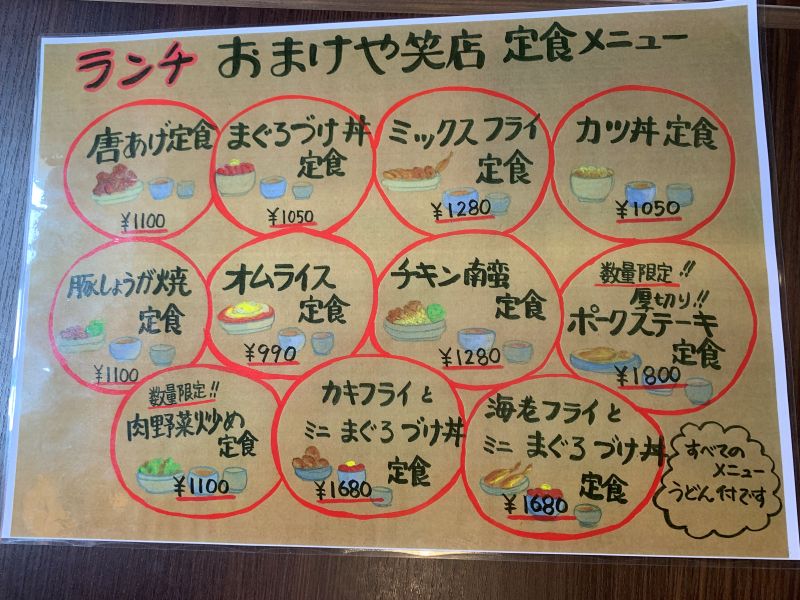 ランチ おまけや笑店 定食メニュー
唐あげ定食
¥1100
まぐろづけ丼
定食
¥1050
ミックスフライ
定食
¥1280
カツ丼定食
¥1050
豚しょうが焼
定食
¥1100
オムライス
定食
¥990
チキン南蛮
定食
¥1280
数量限定!!
厚切り!!
ポークステーキ
定食
¥1800
数量限定!!
肉野菜炒め
定食
¥1100
カキフライと
ミニ まぐろづけ丼
定食
¥1680
海老フライと
ミニ まぐろづけ丼
定食
¥1680
すべての
メニュー
うどん付です